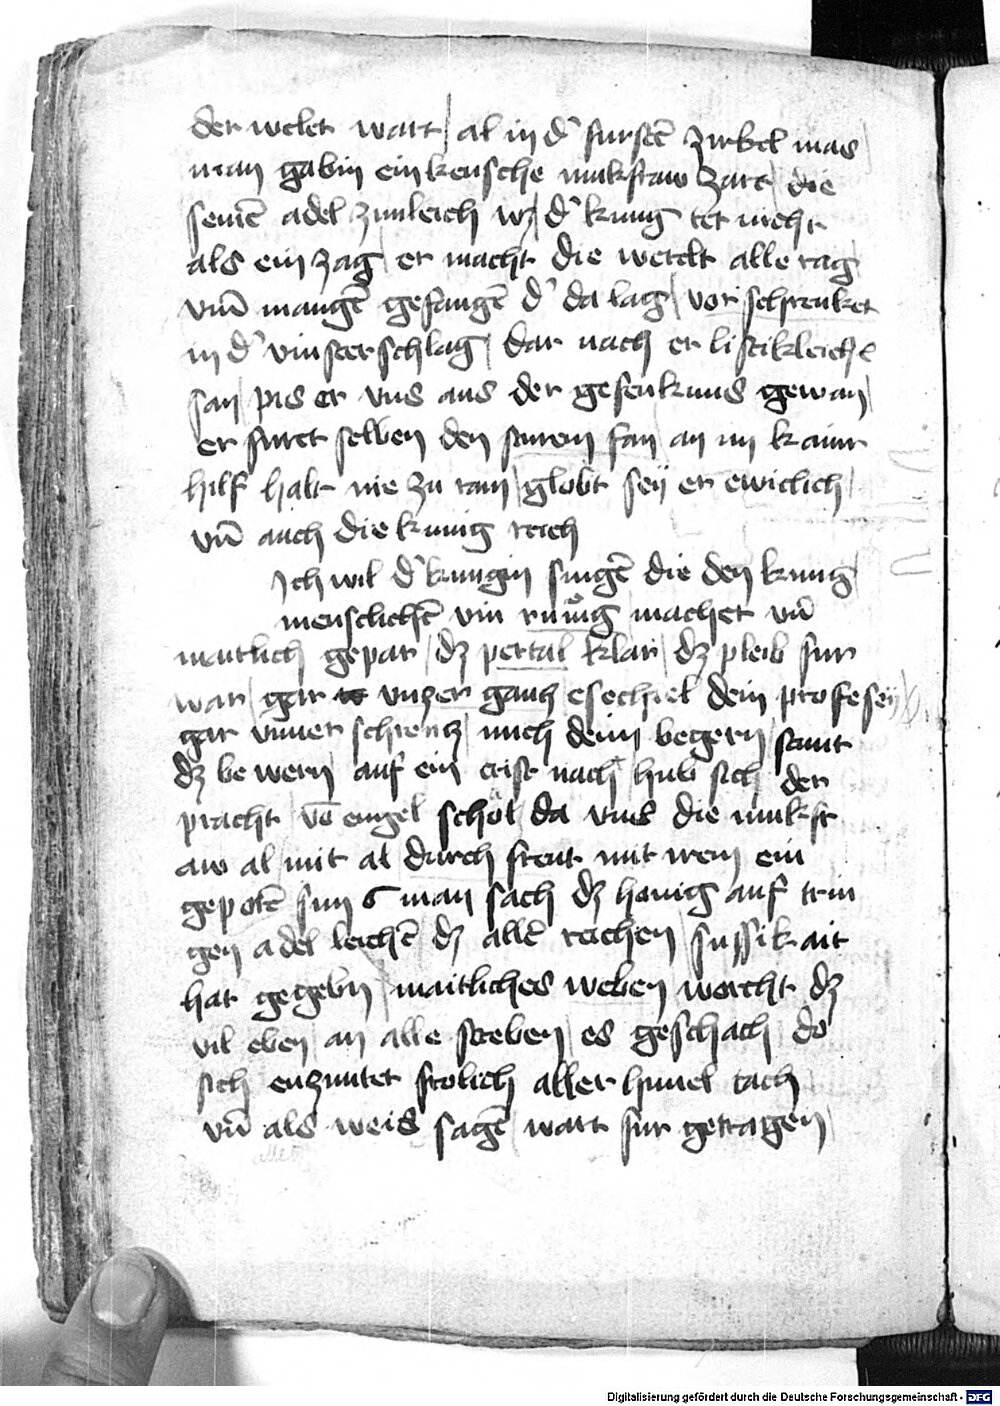 der welet wart / al in d' fursten zirkel mas
man gabin ein keusche mukfraw zart / die
seinē adel zimleich wz / d' kung tet nicht
als ein zag / er macht die werelt alle tag
vnd mangē gefangē d' da lag / vor schrenket
in d' vinster schlag / dar nach er listikleich
san / pis er vns aus der gefenknus gewan /
er furet selben den sturm fan / an im kainr
hilf habt nie zu ram / globt sey er ewiclich /
vnd auch die kunig reich
Ich wil d' kungin singē die den kung
menschlichē machet vnd
mutlich gepar / dz pertal klar / dz pleib fur
war / gar vnzer gancz / esechiel dein profesey /
gar vnuer schrencz / nach deim begern / stant
dz be wern / auf ein erist nach / hub sich der
pracht / vō engel schol / da vns die mukfr
aw al mit al durch freut mit irem ein
gepornē sun man sach dz honig auf trin
gen adel leichē dz allē reichen / sussikait
hat gegebn / maitliches weben worcht dz
vil eben / an alle streben / es geschach / do
sich enzuntet frolich aller himel tach
vnd als weis sagē / wart fur getragen /
Digitalisierung gefördert durch die Deutsche Forschungsgemeinschaft - DFG